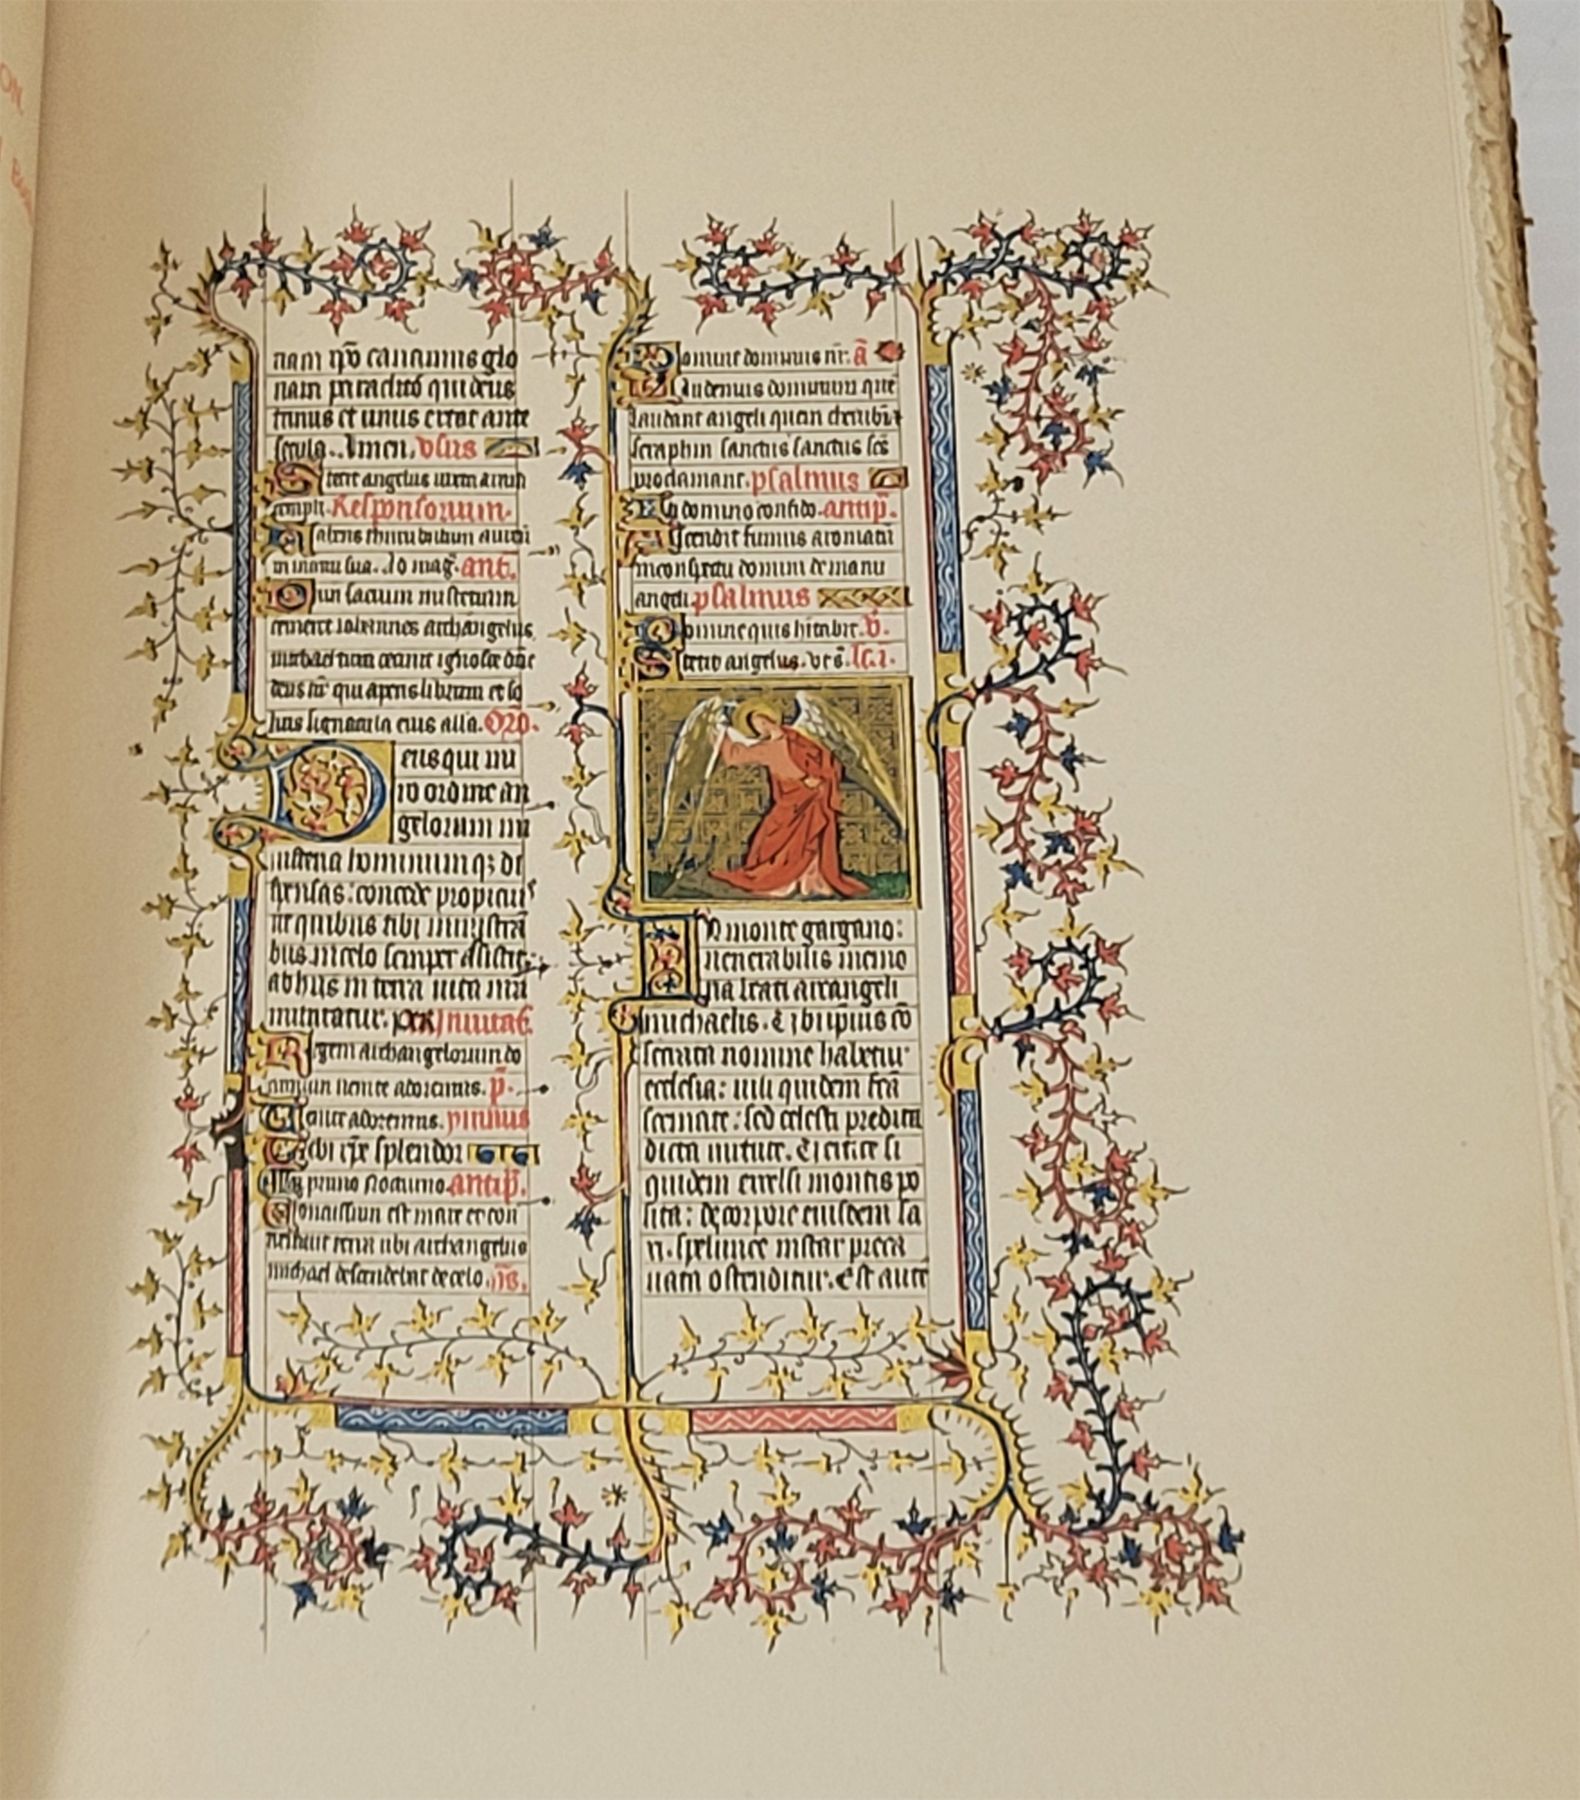 ON.
nam qº canimus glo
nam paraclitō qui deus
trinus et unus error ante
secula. Amen. Vsus
Stetit angelus iuxta aram
templi. Responsorium.
habens thuribulum aureū
in manu sua. Ad mag. ant.
Dum sacrum misterium
cerneret iohannes archangelus
michael tuba
deus nr̄ qui aperis librum et so
luis signacula eius alla. Oro.
Deus qui mi
ro ordine an
gelorum mi
nisteria hominum qꝫ di
spensas: concede propicius
ut quibus tibi ministrā
bus in celo semper assistit:
ab hiis in terra uita nr̄a
muniatur. per. Inuitat.
Regem archangelorum do
minum uenite adoremus. p̄.
Venite adoremus. ymnus
Tibi xp̄e splendor
In primo nocturno. antip̄.
Concussum est mare et con
tremuit terra ubi archangelus
michael descendebat de celo.
Domine dominus nr̄. ā
Laudemus dominum quē
laudant angeli quem cherubin
seraphin sanctus sanctus scs̄
proclamant. psalmus
In domino confido. antip̄.
Ascendit fumus aromatū
in conspectu domini de manu
angeli. psalmus
Domine quis habitabit. v̄.
Stetit angelus. vrs̄. lc̄. i.
In monte gargano:
uenerabilis memo
ria beati arcangeli
michaelis. Et ibi ipsius cō
secrata nomine habetur
ecclesia: uili quidem
scemate: sed celesti predita
dicta uirtute. Et
quidem excelsi montis po
sita: de corpore eiusdem sa
xi. spelunce instar preca
uata ostenditur. Est aute